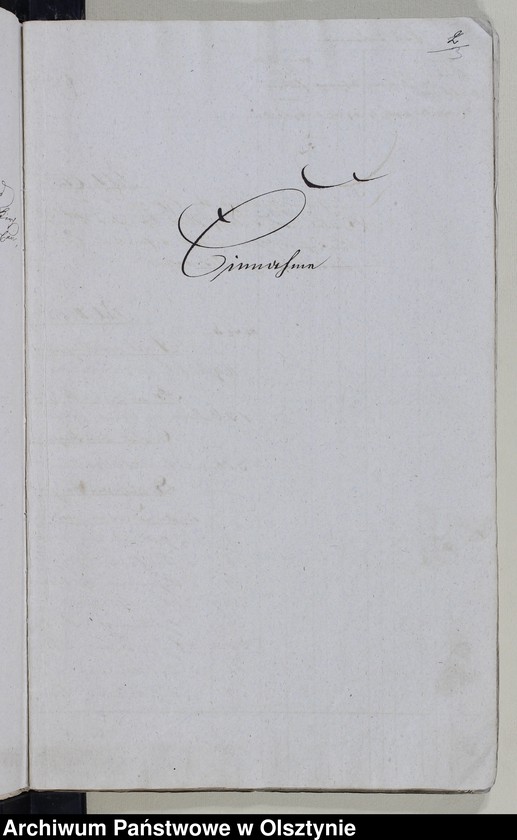 2
3
Einnahme
Archiwum Państwowe w Olsztynie